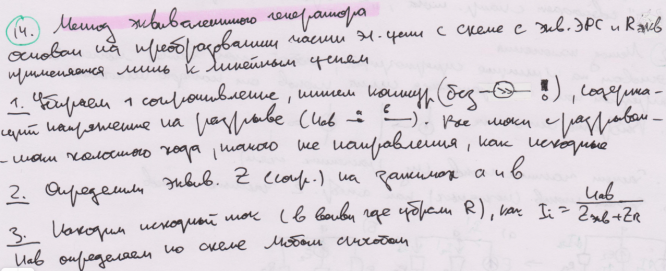 14. Метод эквивалентного генератора
основан на преобразовании части эл. цепи с схеме с экв. ЭРС и Rэкв
применяется лишь к линейным цепям
1. Убираем 1 сопротивление, пишем контур (без ≫ !), содержа-
щий напряжение на разрыве (Uab). Все токи с разрывом-
-токи холостого хода, такого же направления, как исходные
2. Определим эквив. Z (сопр.) на зажимах a и b
3. Находим исходный ток (в ветви где убрали R), как Ii = Uab / Zэкв+ZR
Uab определяем по схеме любым способом